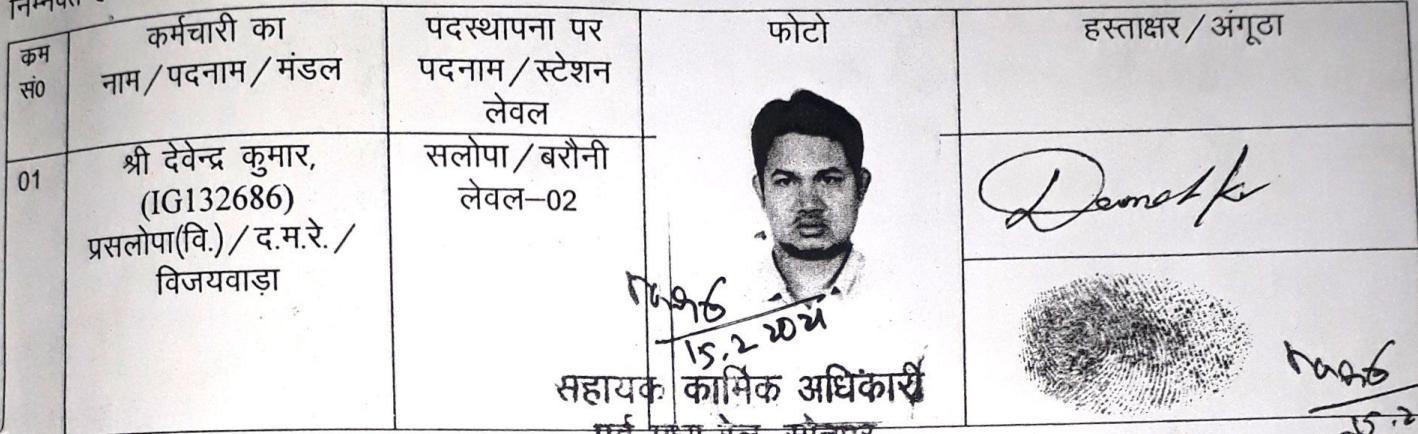 निम्नवत
कम सं0
कर्मचारी का
नाम/पदनाम/मंडल
पदस्थापना पर
पदनाम/स्टेशन
लेवल
फोटो
हस्ताक्षर/अंगूठा
01
श्री देवेन्द्र कुमार,
(IG132686)
प्रसलोपा(वि.)/द.म.रे./
विजयवाड़ा
सलोपा/बरौनी
लेवल–02
15.2 2021
सहायक कार्मिक अधिकारी
पूर्व मध्य रेल, सोनपुर
15.2